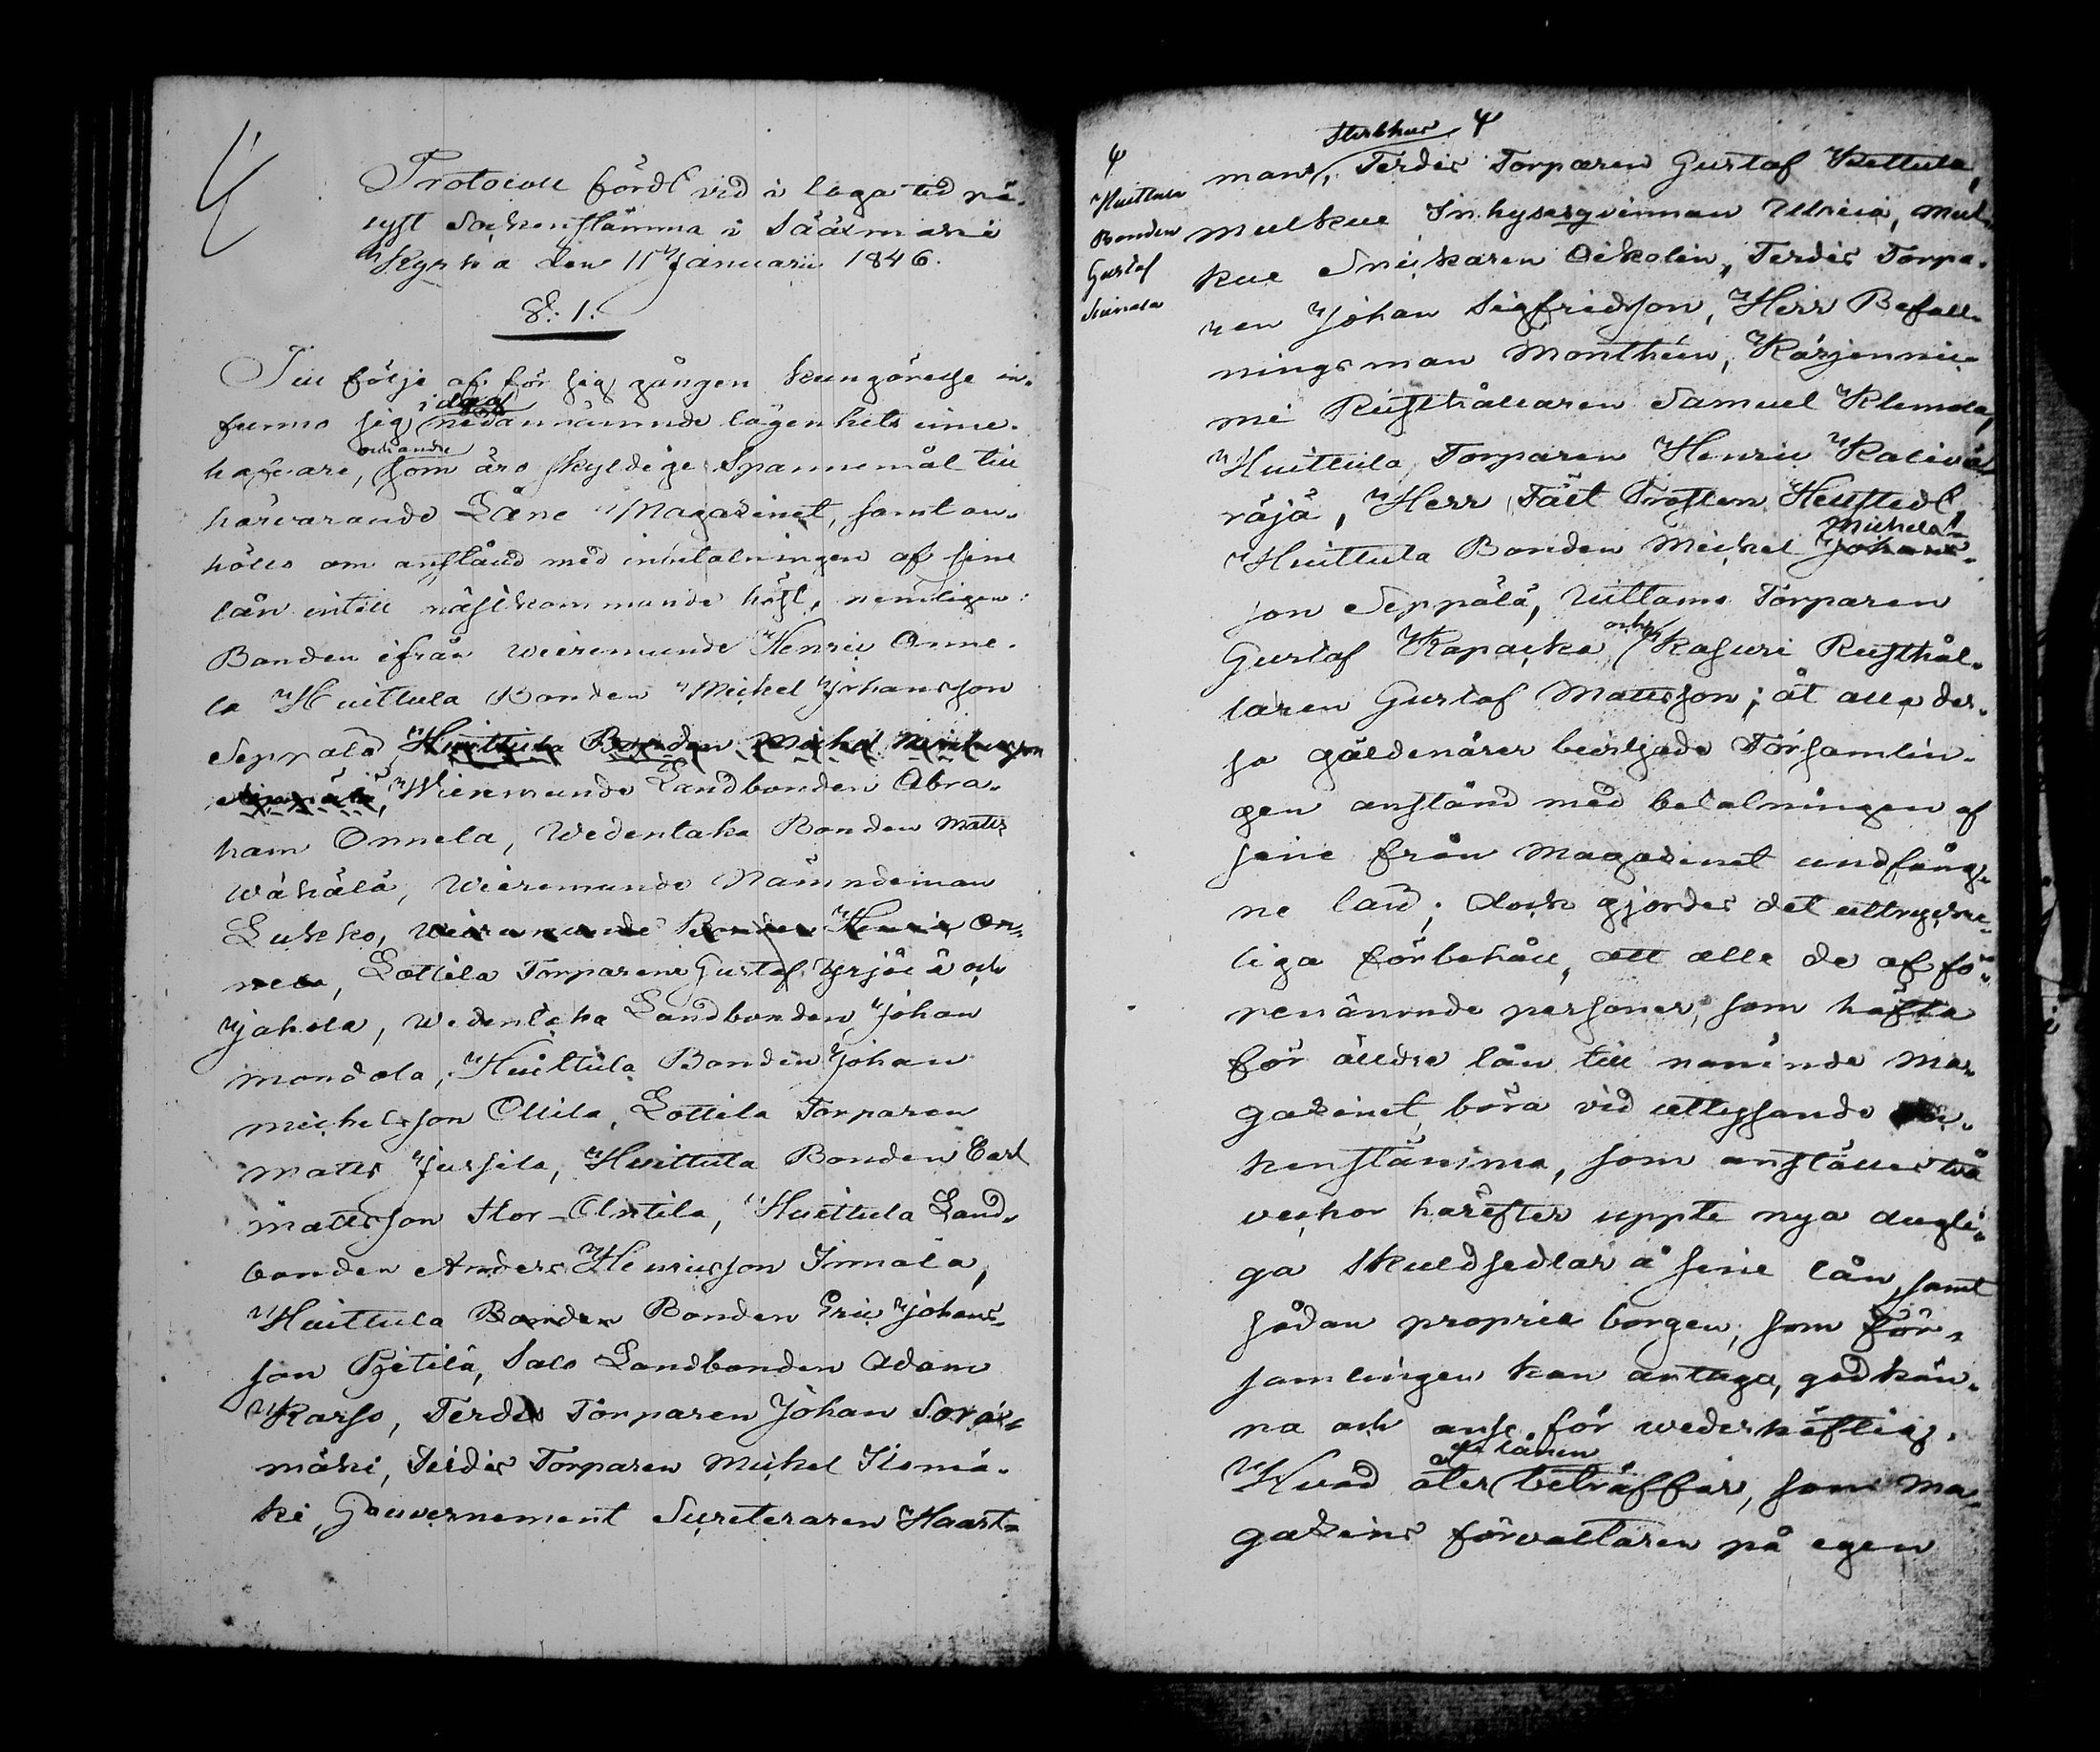 Protocoll fördt vid i laga tid på-
lyst Sockenstämma i Sääxmäki
Kyrka den 11 Januarii 1846.
§. 1.
Till följe af för sig gången kungörelse in-
funno sig i dag nedannämnde lägenhets inne-
hafvare, och andre som äro skyldige Spannemål till
härvarande Låne Magazinet, samt an-
höllo om anstånd med inbetalningen af sine
lån intill nästkommande höst, nemligen:
Bonden ifrån Wieremunde Henric Onne-
la Huittula Bonden Michel Johansson
Seppälä, Huittula Bonden Michel Michelsson
Seppälä, Wieremunde Landbonden Abra-
ham Onnela, Wedentaka Bonden Matts
Wähälä, Wieremunde Nämndeman
Lukko, Wieremunde Bonden Henric On-
nela, Lottila Torparene Gustaf Yrjölä och
Jahola, Wedentaka Landbonden Johan
Mondola, Huittula Bonden Johan
Michelsson Ollila, Lottila Torparen
Matts Jussila, Huittula Bonden Carl
Mattsson Stor-Anttila, Huittula Land-
bonden Anders Henricsson Jnnala,
Huittula Bonden Bonden Eric Johans-
son Pjetilä, Salo Landbonden Adam
Karso, Ferdis Torparen Johan Sorri-
mäki, Ferdis Torparen Michel Isomä-
ki, Gouvernement Secreteraren Haart-
Ψ
Huittula
Bonden
Gustaf
Sterbhus Ψ
mans, Ferdis Torparen Gustaf Huittula,
Mälkue Inhysesqvinnan Ulrica, Mäl-
kue Snickaren Oikolin, Ferdis Torpa-
ren Johan Sigfridsson, Herr Befall-
ningsman Monthén, Kärjennie-
mi Rusthållaren Samuel Klemola,
Huittula Torparen Henric Kaliva-
räjä, Herr Fält Prosten Heustedt,
Huittula Bonden Michel Johans- Michels-
son Seppälä, Uittamo Torparen
Gustaf Rapacka och Kasuri Rusthål-
laren Gustaf Mattsson; åt alla des-
sa gäldenärer beviljade Församlin-
gen anstånd med betalningen af
sine från Magazinet undfång-
ne lån; dock gjordes det uttrycke-
liga förbehåll, att alle de af fö-
renämnde personer, som häfta
för äldre lån till nämnde Ma-
gazinet, böra vid utlysande Soc-
kenstämma, som anställes två
veckor härefter uppte nya dugli-
ga Skuldsedlar å sine lån, samt
sådan proprie borgen, som För-
samlingen kan antaga, godkän-
na och anse för wederhäftig.
Hvad åter de lånen beträffar, som Ma-
gazins förvaltaren på egen